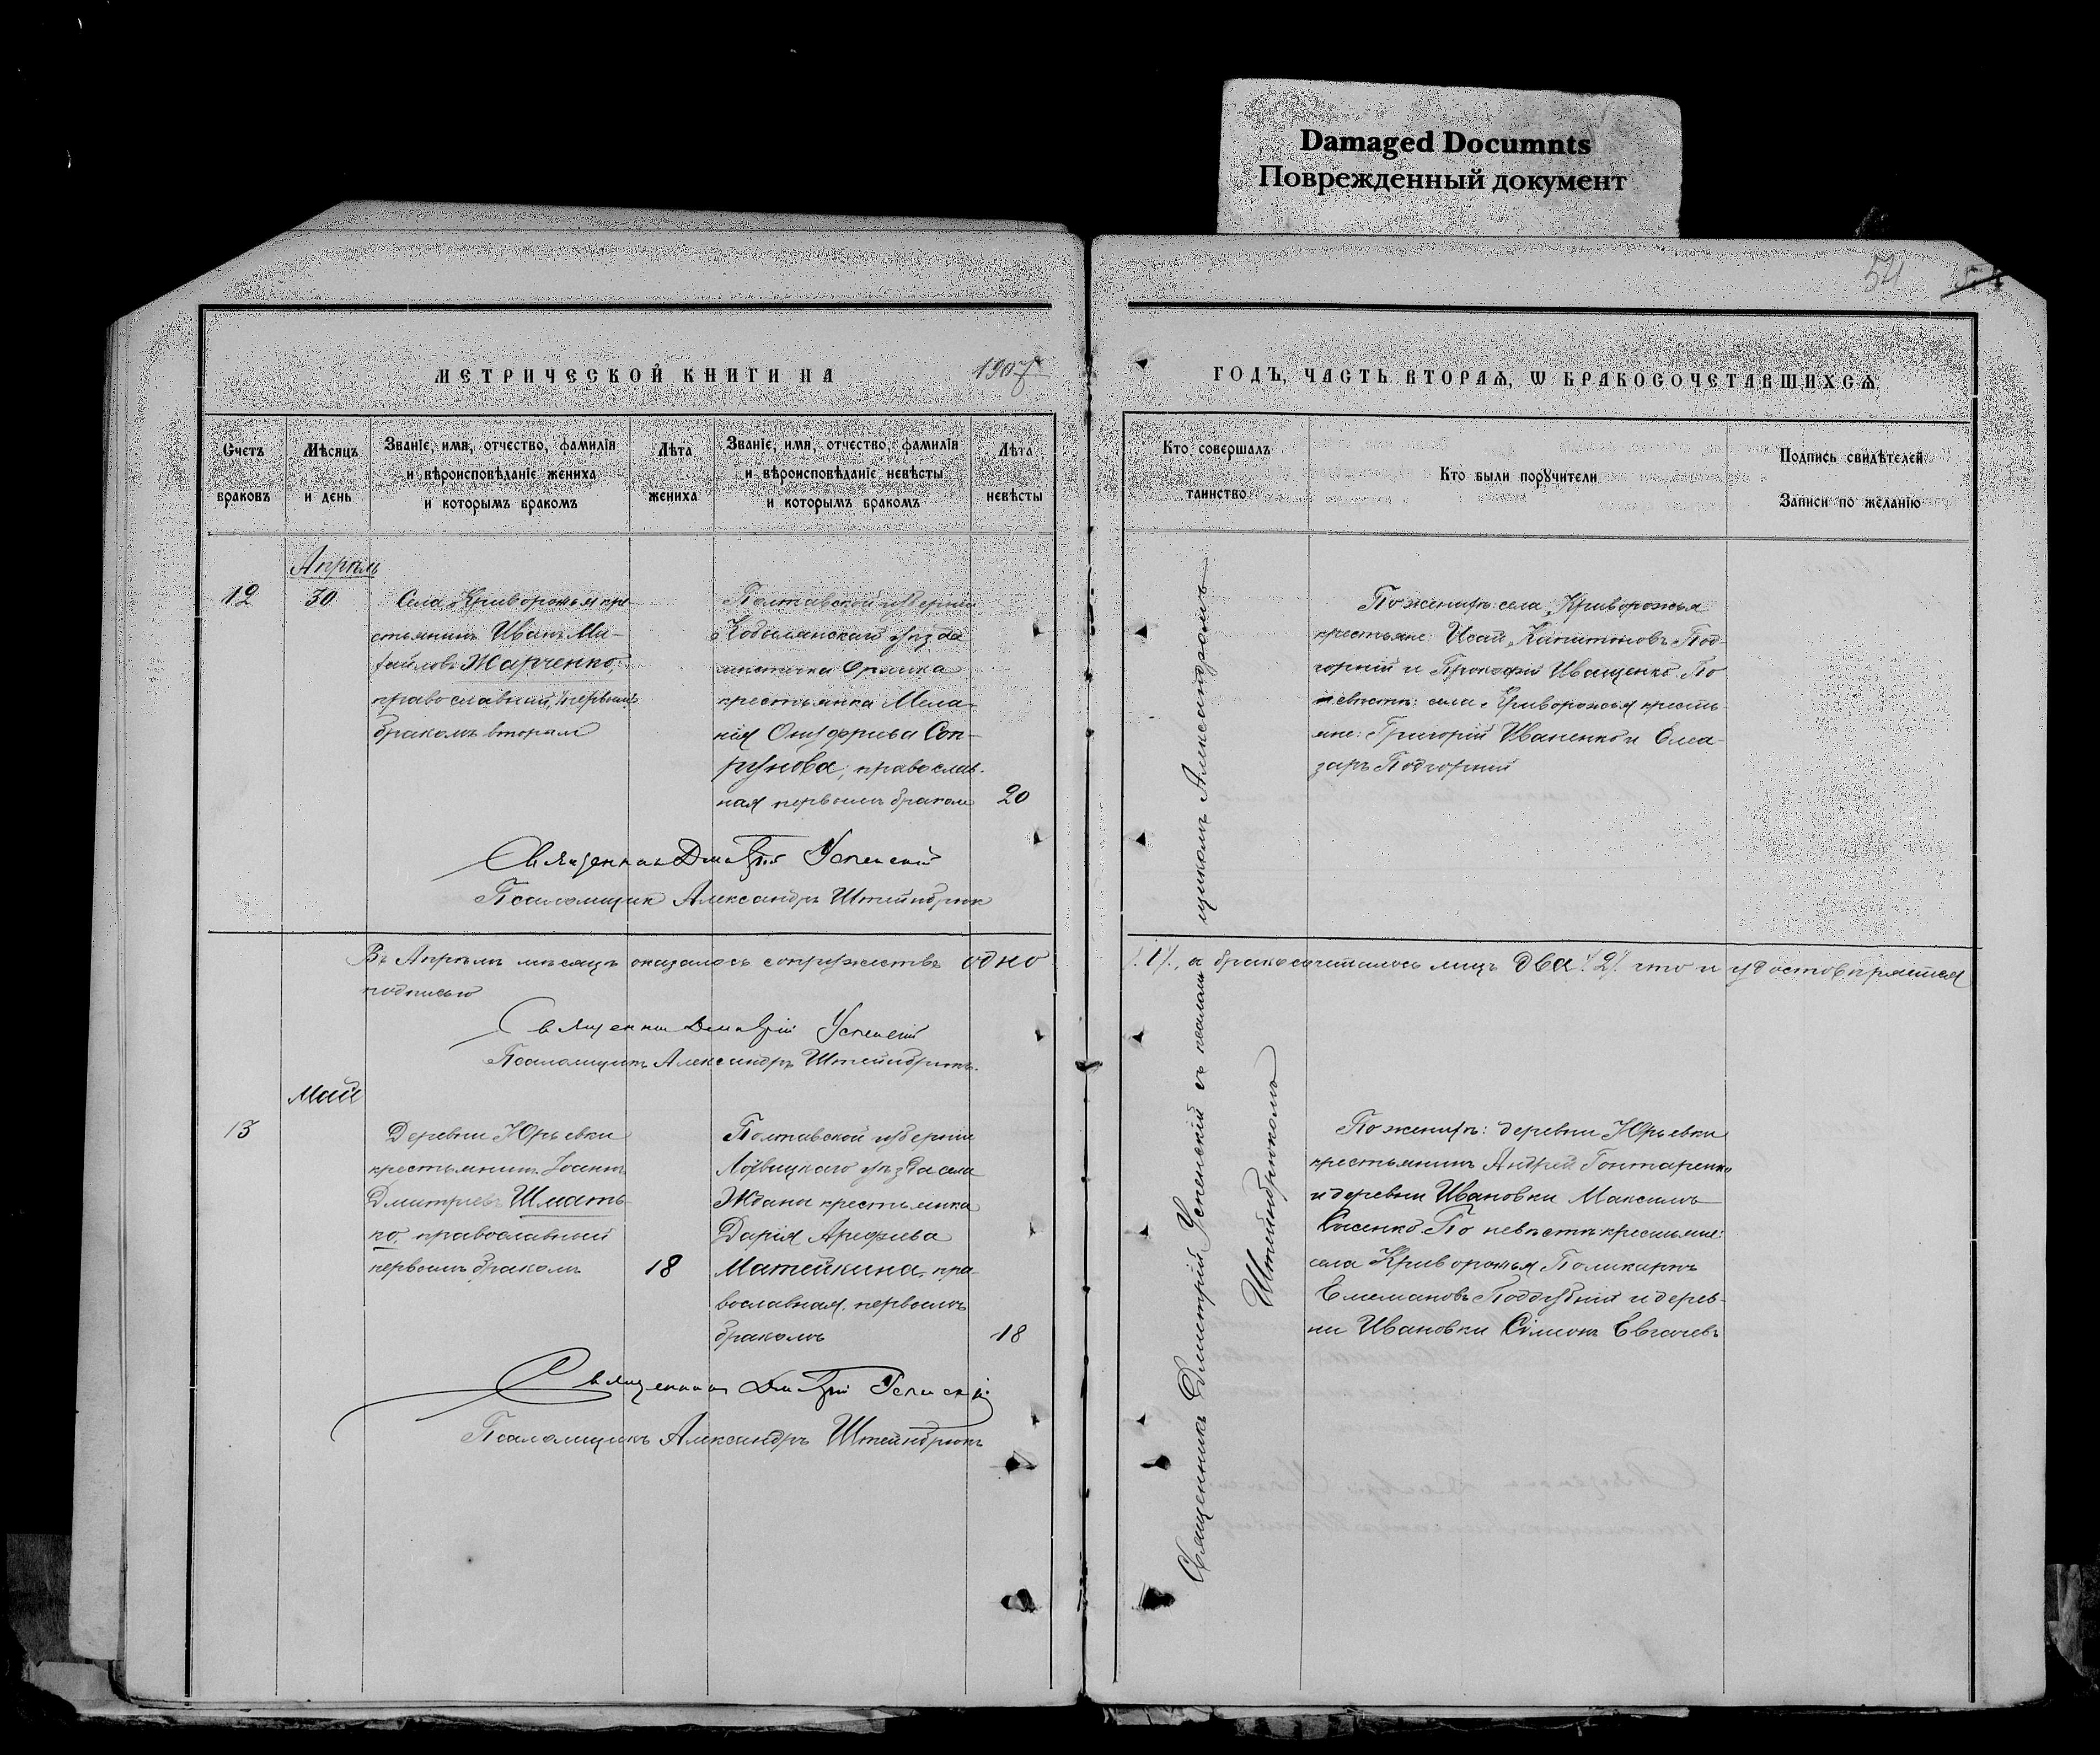 Damaged Documnts
Поврежденный документ
54
МЕТРИЧЕСКОЙ КНИГИ НА 1907
ГОДЪ, ЧАСТЬ ВТОРАѦ, Ѡ БРАКОСОЧЕТАВШИХСѦ
Счетъ браковъ
Мѣсяцъ и день
Званіе, имя, отчество, фамилія
и вѣроисповѣданіе жениха
и которымъ бракомъ
Лѣта жениха
Званіе, имя, отчество, фамилія
и вѣроисповѣданіе невѣсты
и которымъ бракомъ
Лѣта невѣсты
Кто совершалъ
таинство
Кто были поручители
Подпись свидѣтелей
Записи по желанію
Апрѣль
12
30
Села Криворожья кре-
стьянинъ Иванъ Ми-
хайловъ Жарченко,
православный,
бракомъ вторым
Полтавской губерніи
Кобелякскаго уѣзда
мѣстечка Орлика
крестьянка Мела-
нія Онуфріева Соп-
рунова, православ-
ная первымъ браком
20
Священникъ Дмитрій Успенскій
Псаломщик Александръ Штейнбрюк
По женихѣ: села Криворожья
крестьяне: Исай Капитоновъ Под-
горный и Прокофій Иващенко. По
невѣстѣ: села Криворожья кресть-
яне: Григорій Иваненко и Елеа-
заръ Подгорный
Священникъ Дмитрій Успенскій съ псаломщикомъ Александромъ
Штейнбрюкомъ
Въ Апрѣлѣ мѣсяцѣ оказалось супружествъ одно
/1/, а бракосочеталось лицъ два /2/ что и удостовѣряется
подписью
Священникъ Дмитрій Успенскій
Псаломщикъ Александръ Штейнбрюкъ.
Май
13
Деревни Юрьевки
крестьянинъ Іоаннъ
Дмитріевъ Шмать-
ко, православный
первымъ бракомъ
18
Полтавской губерніи
уѣзда села
Жданы крестьянка
Дарія Арефіева
Матейкина, пра-
вославная, первымъ
бракомъ
18
Священникъ Дмитрій Успенскій
Псаломщикъ Александръ Штейнбрюкъ
По женихѣ: деревни Юрьевки
крестьянинъ Андрей Гонтаренко
и деревни Ивановки Максимъ
По невѣстѣ крестьяне:
села Криворожья Поликарпъ
Поддубный и дерев-
ни Ивановки Симонъ